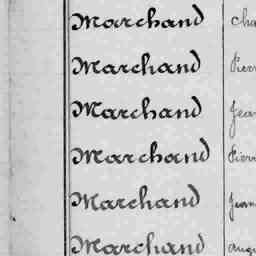 Marchand
Marchand Pierr
Marchand Jean
Marchand Pierr
Marchand Jean
Marchand